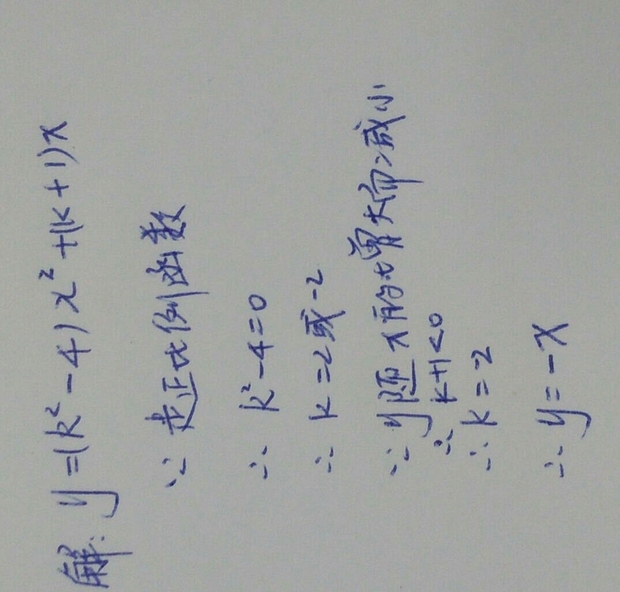 解: y=(k²-4)x²+(k+1)x
∵ 是正比例函数
∴ k²-4=0
∴ k=2或-2
∵ y随x的增大而减小
∴ k+1<0
∴ k=-2
∴ y=-x